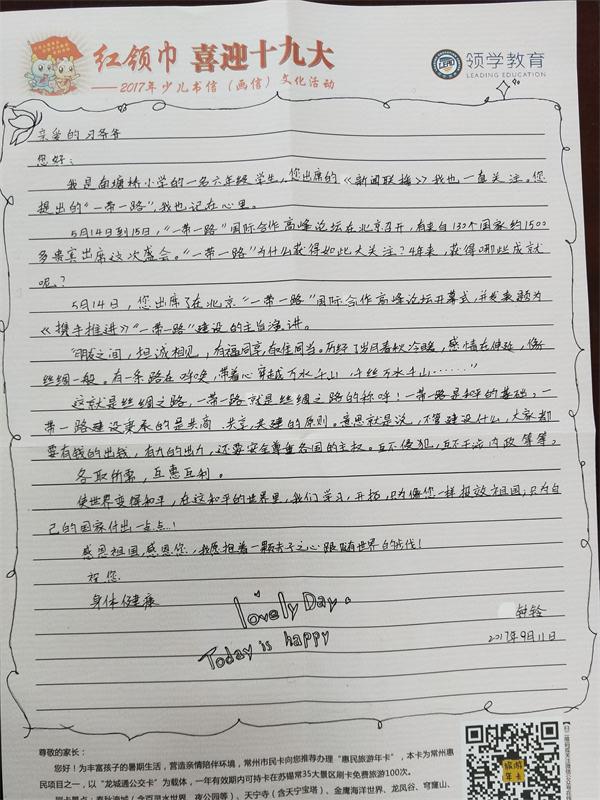 红领巾 喜迎十九大
——2017年少儿书信（画信）文化活动
领学教育
LEADING EDUCATION
亲爱的习爷爷
您好：
我是南塘桥小学的一名六年级学生，您出席的《新闻联播》我也一直关注。您
提出的“一带一路”，我也记在心里。
5月14日到15日，“一带一路”国际合作高峰论坛在北京召开，有来自130个国家约1500
多贵宾出席这次盛会。“一带一路”为什么获得如此大关注？4年来，获得哪些成就
呢？
5月14日，您出席了在北京“一带一路”国际合作高峰论坛开幕式，并发表题为
《携手推进》“一带一路”建设的主旨演讲。
“朋友之间，坦诚相见，有福同享，有难同当。历经了岁月春秋冷暖，感情在伸延，像
丝绸一般。有一条路在呼唤，带着心穿越万水千山，千丝万水千山……”
这就是丝绸之路，一带一路就是丝绸之路的称呼！一带一路是和平的基础，一
带一路建设秉承的是共商、共享、共建的原则。意思就是说，不管建设什么，大家都
要有钱的出钱，有力的出力，还要完全尊重各国的主权。互不侵犯，互不干涉内政等等。
各取所需，互惠互利。
使世界变得和平，在这和平的世界里，我们学习，开拓，只为像您一样报效祖国；只为自
己的国家付出一点点！
感恩祖国，感恩您，我愿抱着一颗赤子之心跟随世界的时代！
祝您
身体健康
钟铃
2017年9月11日
lovely Day.
Today is happy
尊敬的家长：
您好！为丰富孩子的暑期生活，营造亲情陪伴环境，常州市民卡向您推荐办理“惠民旅游年卡”，本卡为常州惠
民项目之一，以“龙城通公交卡”为载体，一年有效期内可持卡在苏锡常35大景区刷卡免费旅游100次。
旅游年卡